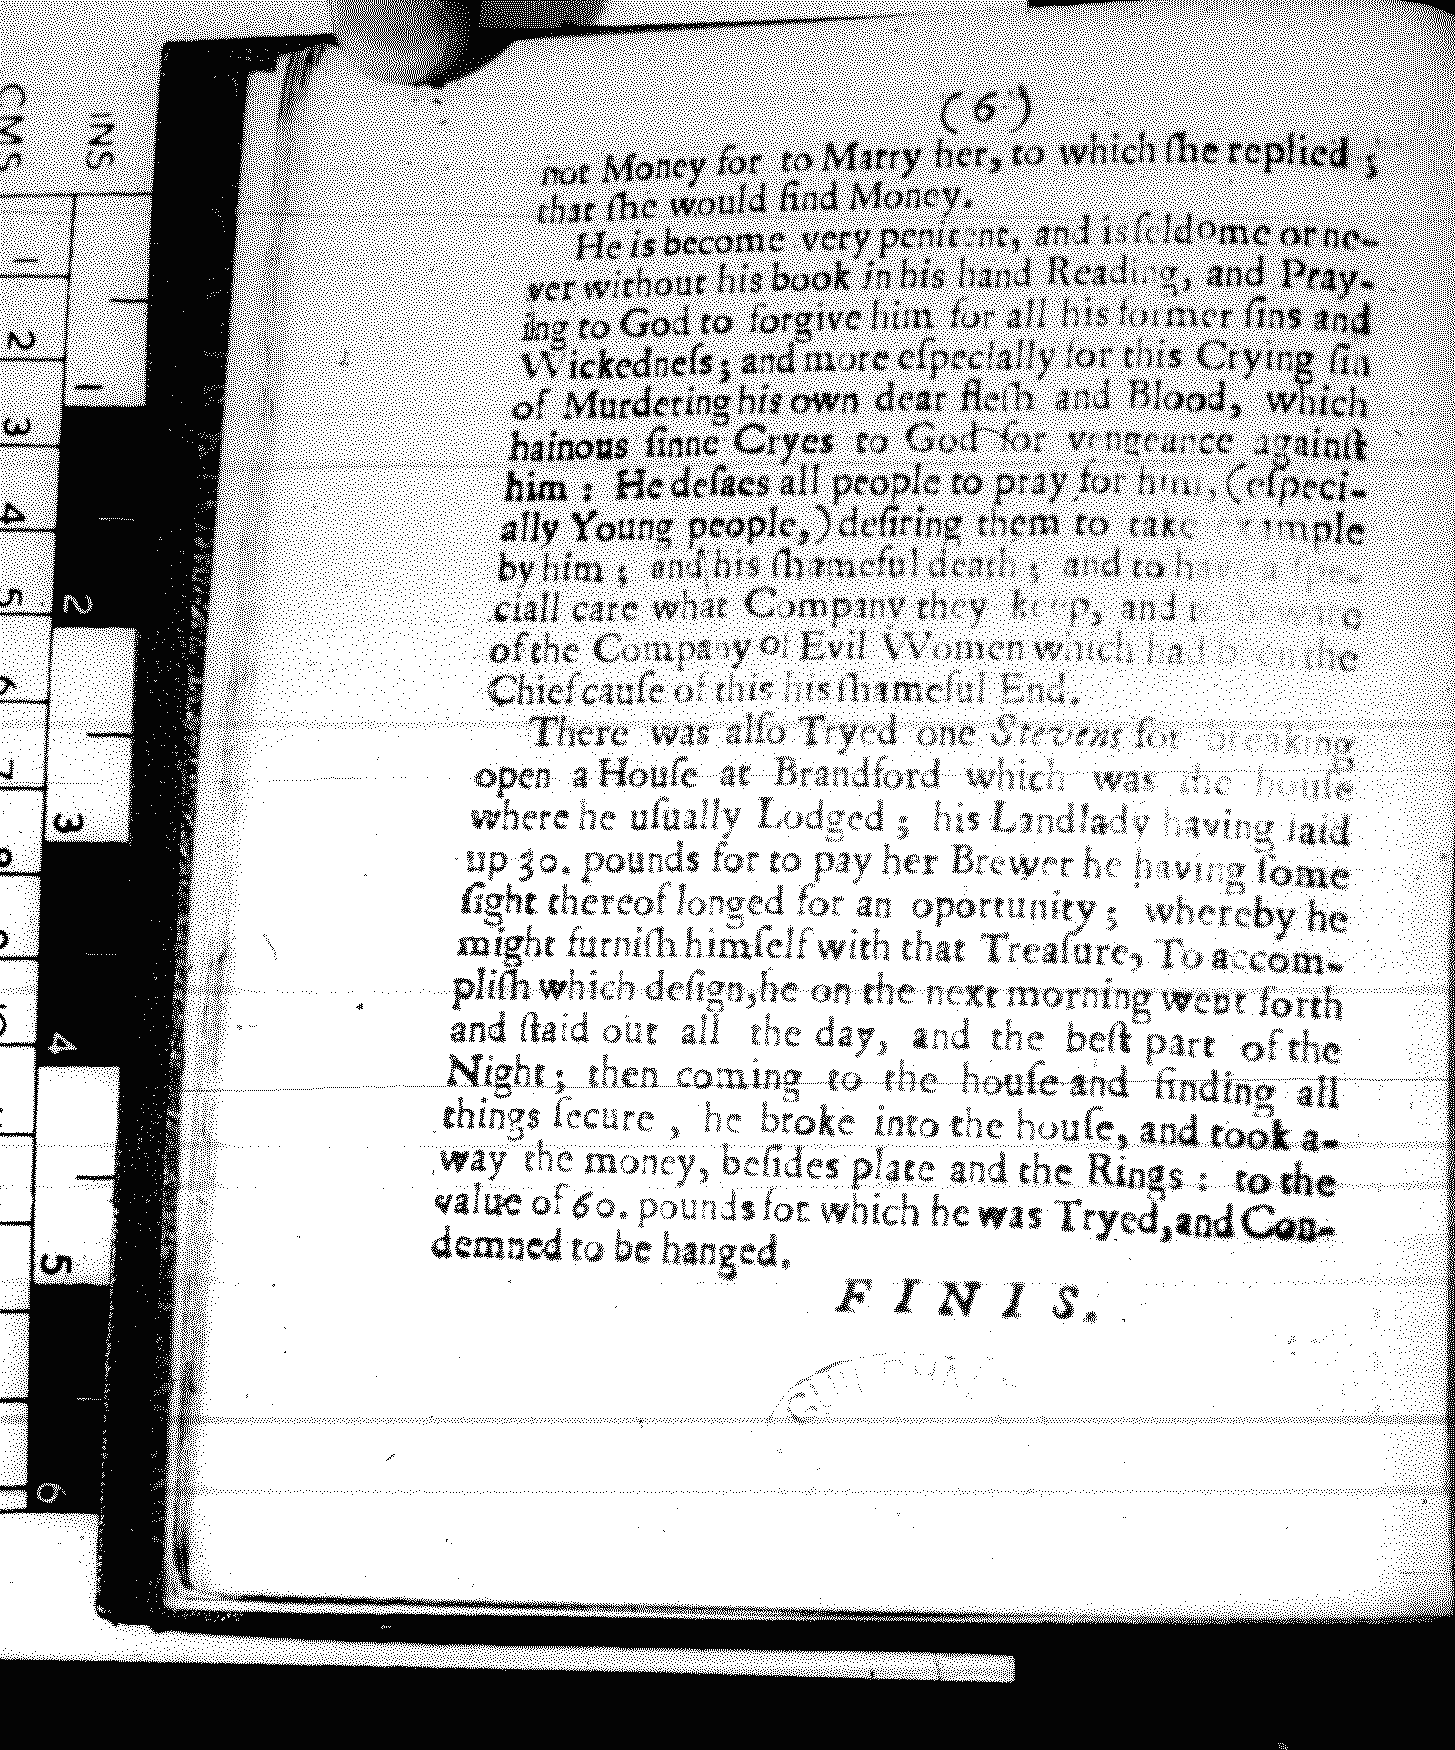 (6)
not Money for to Marry her, to which ſhe replied ;
that ſhe would find Money.
He is become very penitent, and is ſeldome or ne-
ver without his book in his hand Reading, and Pray-
ing to God to forgive him for all his former ſins and
Wickedneſs ; and more eſpecially for this Crying ſin
of Murdering his own dear fleſh and Blood, which
hainous ſinne Cryes to God for vengeance againſt
him : He deſaes all people to pray for him, (eſpeci-
ally Young people,) deſiring them to take
by him ; and his ſhameful death ; and to
ciall care what Company they keep, and
of the Company of Evil Women which the
Chief cauſe of this his ſhameful End.
There was alſo Tryed one Stevens for breaking
open a Houſe at Brandford which was the houſe
where he uſually Lodged ; his Landlady having laid
up 30. pounds for to pay her Brewer he having ſome
ſight thereof longed for an oportunity ; whereby he
might furniſh himſelf with that Treaſure, To accom-
pliſh which deſign, he on the next morning went forth
and ſtaid out all the day, and the beſt part of the
Night ; then coming to the houſe and finding all
things ſecure , he broke into the houſe, and took a-
way the money, beſides plate and the Rings : to the
value of 60. pounds for which he was Tryed, and Con-
demned to be hanged.
FINIS.
CMS
INS
1
2
3
4
5
6
7
8
1
2
3
4
5
6